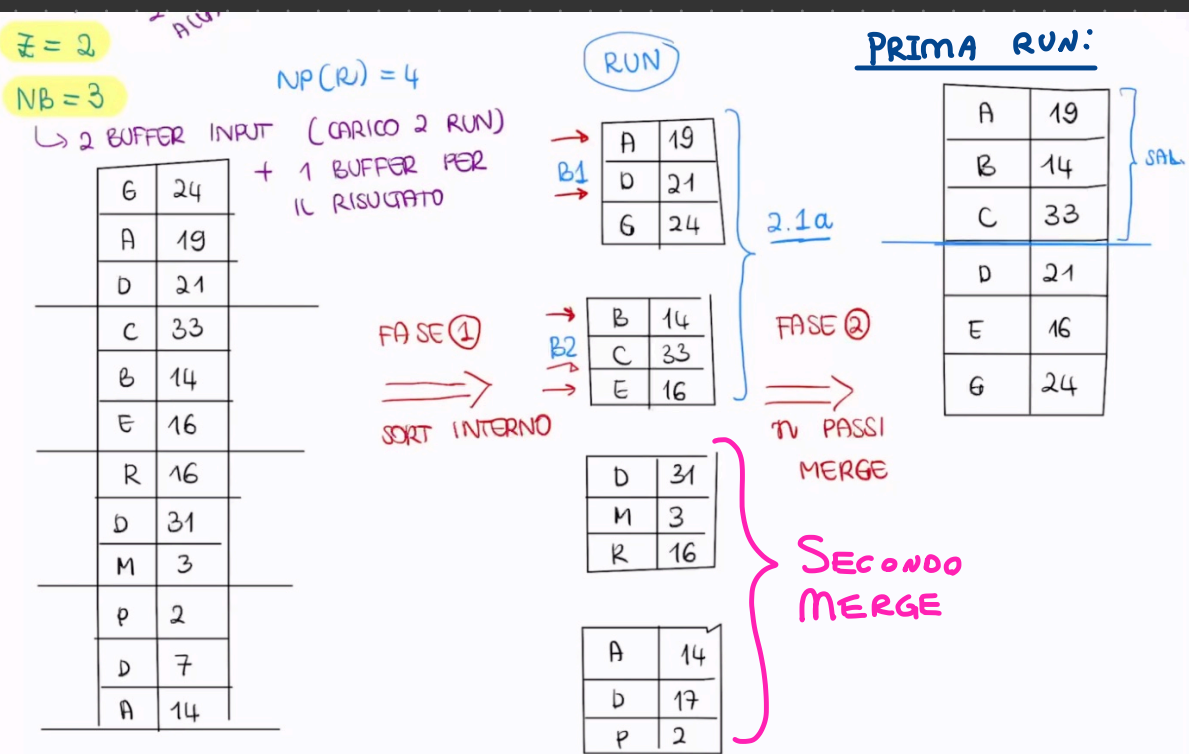 Z = 2
NB = 3
NP(R) = 4
↳ 2 BUFFER INPUT (CARICO 2 RUN)
+ 1 BUFFER PER
IL RISULTATO
G 24
A 19
D 21
C 33
B 14
E 16
R 16
D 31
M 3
P 2
D 7
A 14
FASE 1
SORT INTERNO
RUN
B1
A 19
D 21
G 24
B2
B 14
C 33
E 16
D 31
M 3
R 16
A 14
D 17
P 2
2.1a
FASE 2
n PASSI
MERGE
SECONDO
MERGE
PRIMA RUN:
A 19
B 14
C 33
D 21
E 16
G 24
SAL.